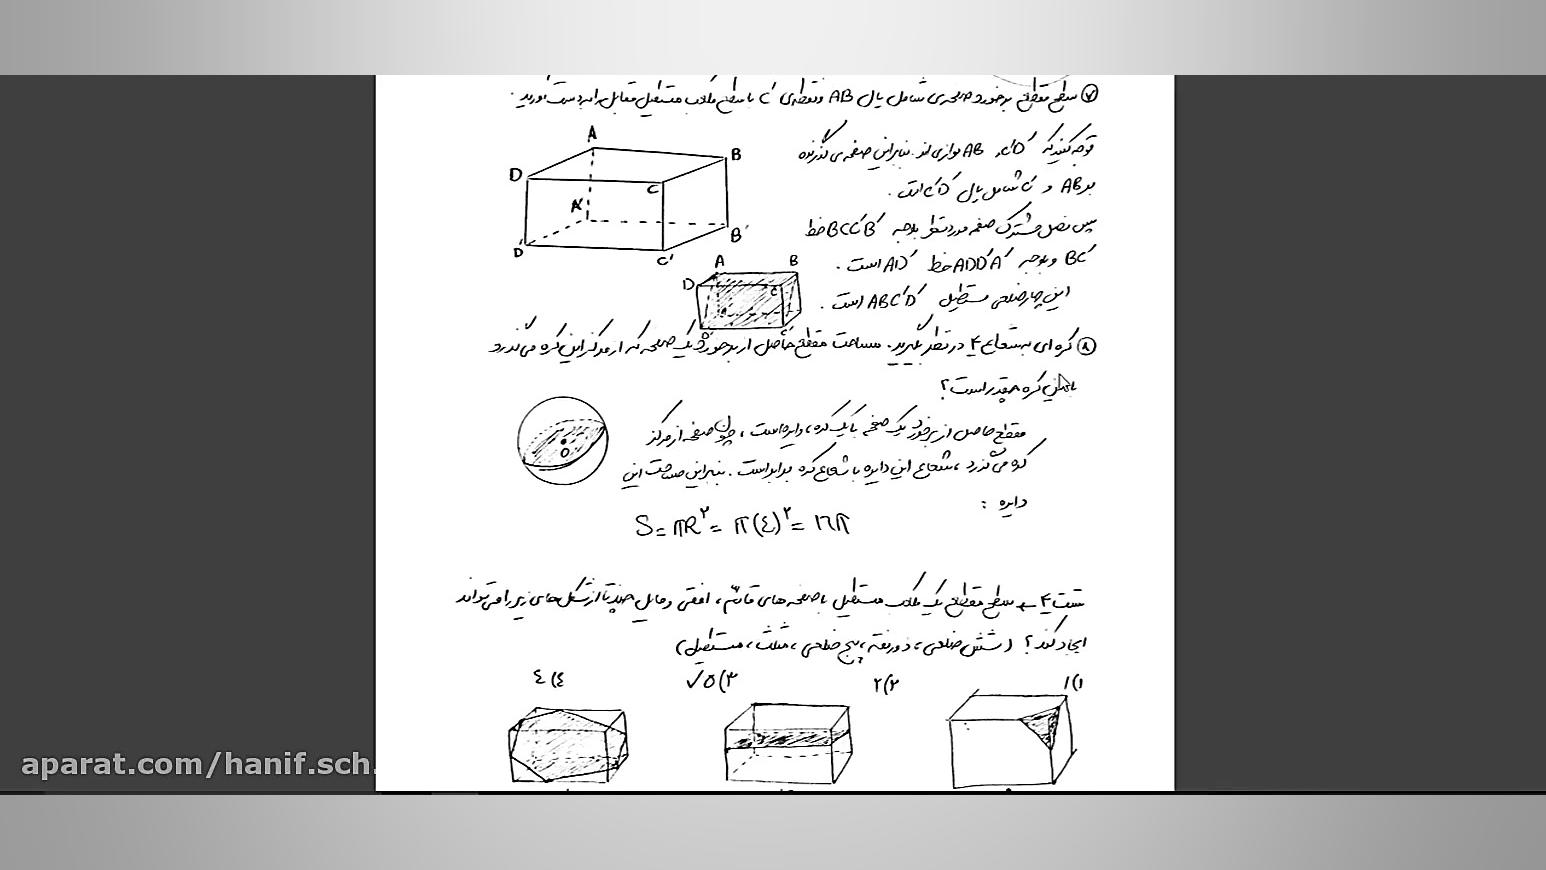 ۷) سطح مقطع برخورد صفحه‌ی شامل یال AB و نقطه‌ی C' با سطح مکعب مستطیل مقابل را بدست آورید.
توجه کنید که C'D' و AB موازی اند. بنابراین صفحه‌ی گذرنده
بر AB و C' شامل یال C'D' است.
پس فصل مشترک صفحه مورد نظر با وجه BCC'B' خط
BC' و با وجه ADD'A' خط AD' است.
این چهارضلعی مستطیل ABC'D' است.
A
B
D
C
A'
B'
D'
C'
A
B
D
C
D'
C'
۸) کره ای به شعاع ۴ در نظر بگیرید. مساحت مقطع حاصل از برخورد یک صفحه که از مرکز این کره می‌گذرد
با این کره چقدر است؟
مقطع حاصل از برخورد یک صفحه با یک کره، دایره است، چون صفحه از مرکز
کره می‌گذرد، شعاع این دایره با شعاع کره برابر است. بنابراین مساحت این
دایره :
O
S = πR² = π(٤)² = ١٦π
تست ۴ → سطح مقطع یک مکعب مستطیل با صفحه های قائم، افقی و مایل چند تا از شکل های زیر را می‌تواند
ایجاد کند؟ (شش ضلعی، ذوزنقه، پنج ضلعی، مثلث، مستطیل)
۱) ۱
۲) ۲
۳) ۵ ✓
٤) ٤
aparat.com/hanif.sch.